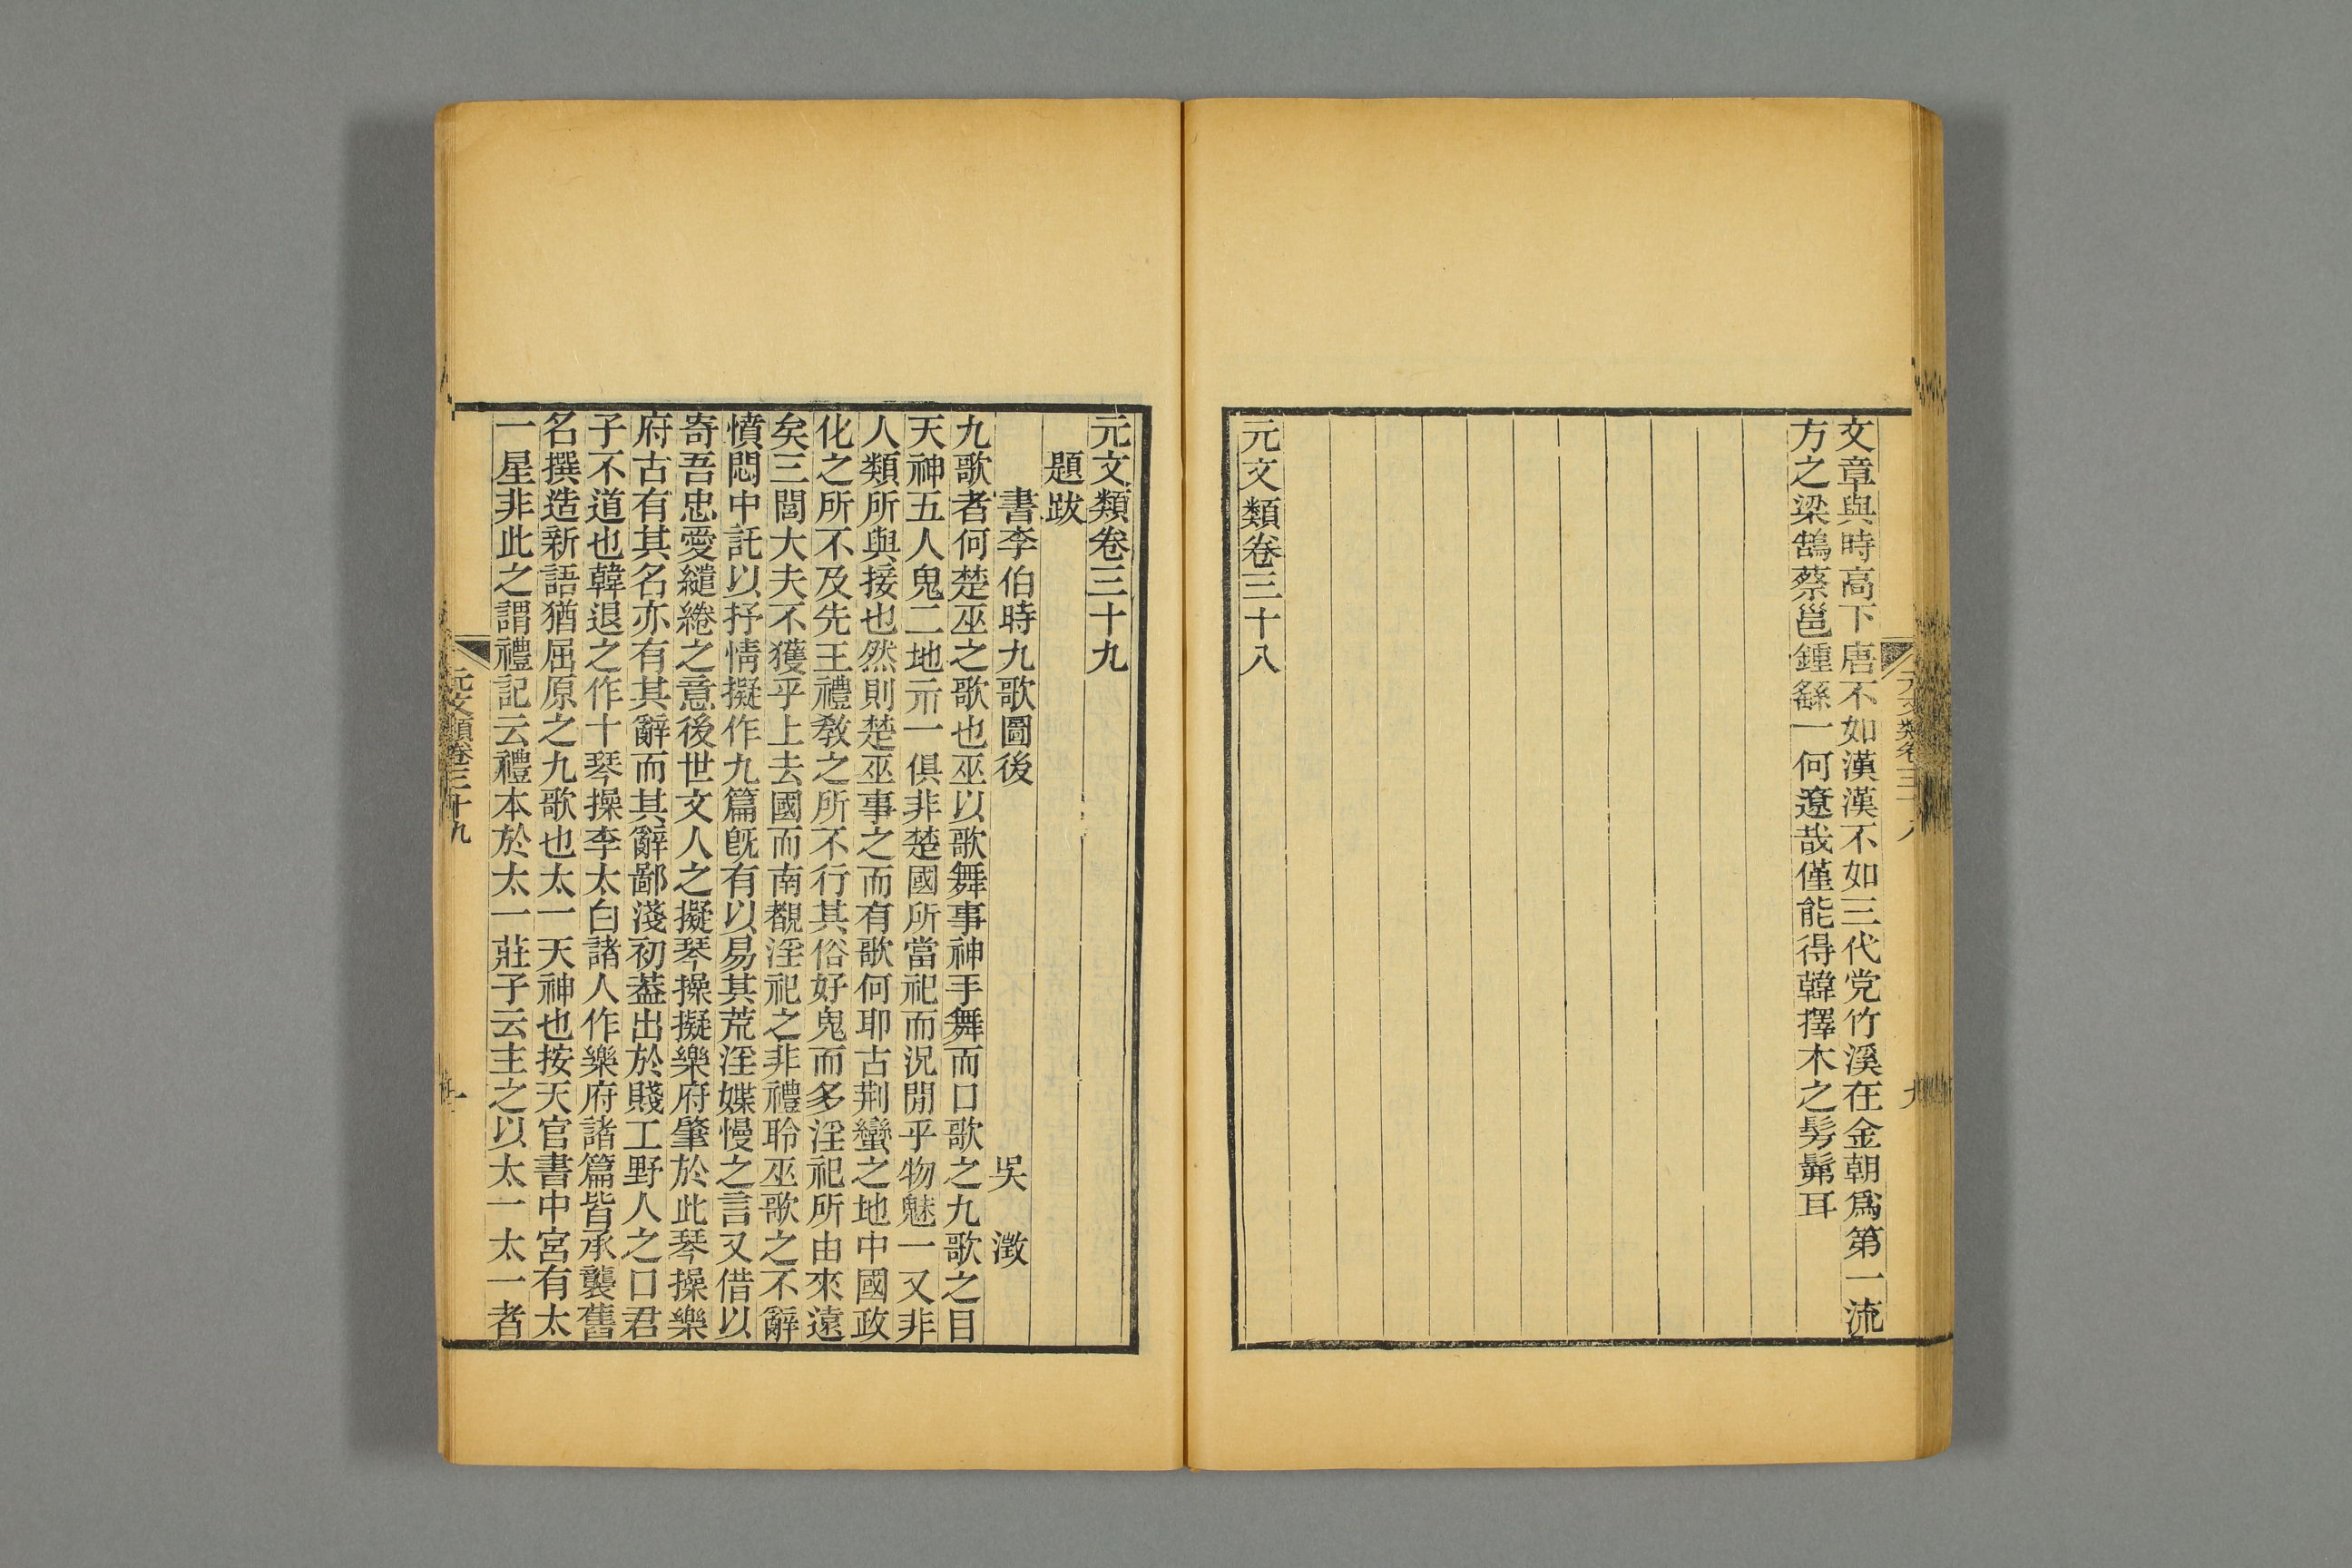 文章與時高下唐不如漢漢不如三代党竹溪在金朝爲第一流
方之梁鵠蔡邕鍾繇一何遼哉僅能得韓擇木之髣髴耳
元文類卷三十八
元文類卷三十九
題跋
書李伯時九歌圖後 吳澂
九歌者何楚巫之歌也巫以歌舞事神手舞而口歌之九歌之目
天神五人鬼二地示一俱非楚國所當祀而況閒乎物魅一又非
人類所與接也然則楚巫事之而有歌何耶古荆蠻之地中國政
化之所不及先王禮敎之所不行其俗好鬼而多淫祀所由來遠
矣三閭大夫不獲乎上去國而南覩淫祀之非禮聆巫歌之不辭
憤悶中託以抒情擬作九篇旣有以易其荒淫媟慢之言又借以
寄吾忠愛繾綣之意後世文人之擬琴操擬樂府肇於此琴操樂
府古有其名亦有其辭而其辭鄙淺初葢出於賤工野人之口君
子不道也韓退之作十琴操李太白諸人作樂府諸篇皆承襲舊
名撰造新語猶屈原之九歌也太一天神也按天官書中宮有太
一星非此之謂禮記云禮本於太一莊子云主之以太一太一者
元文類卷三十九
一